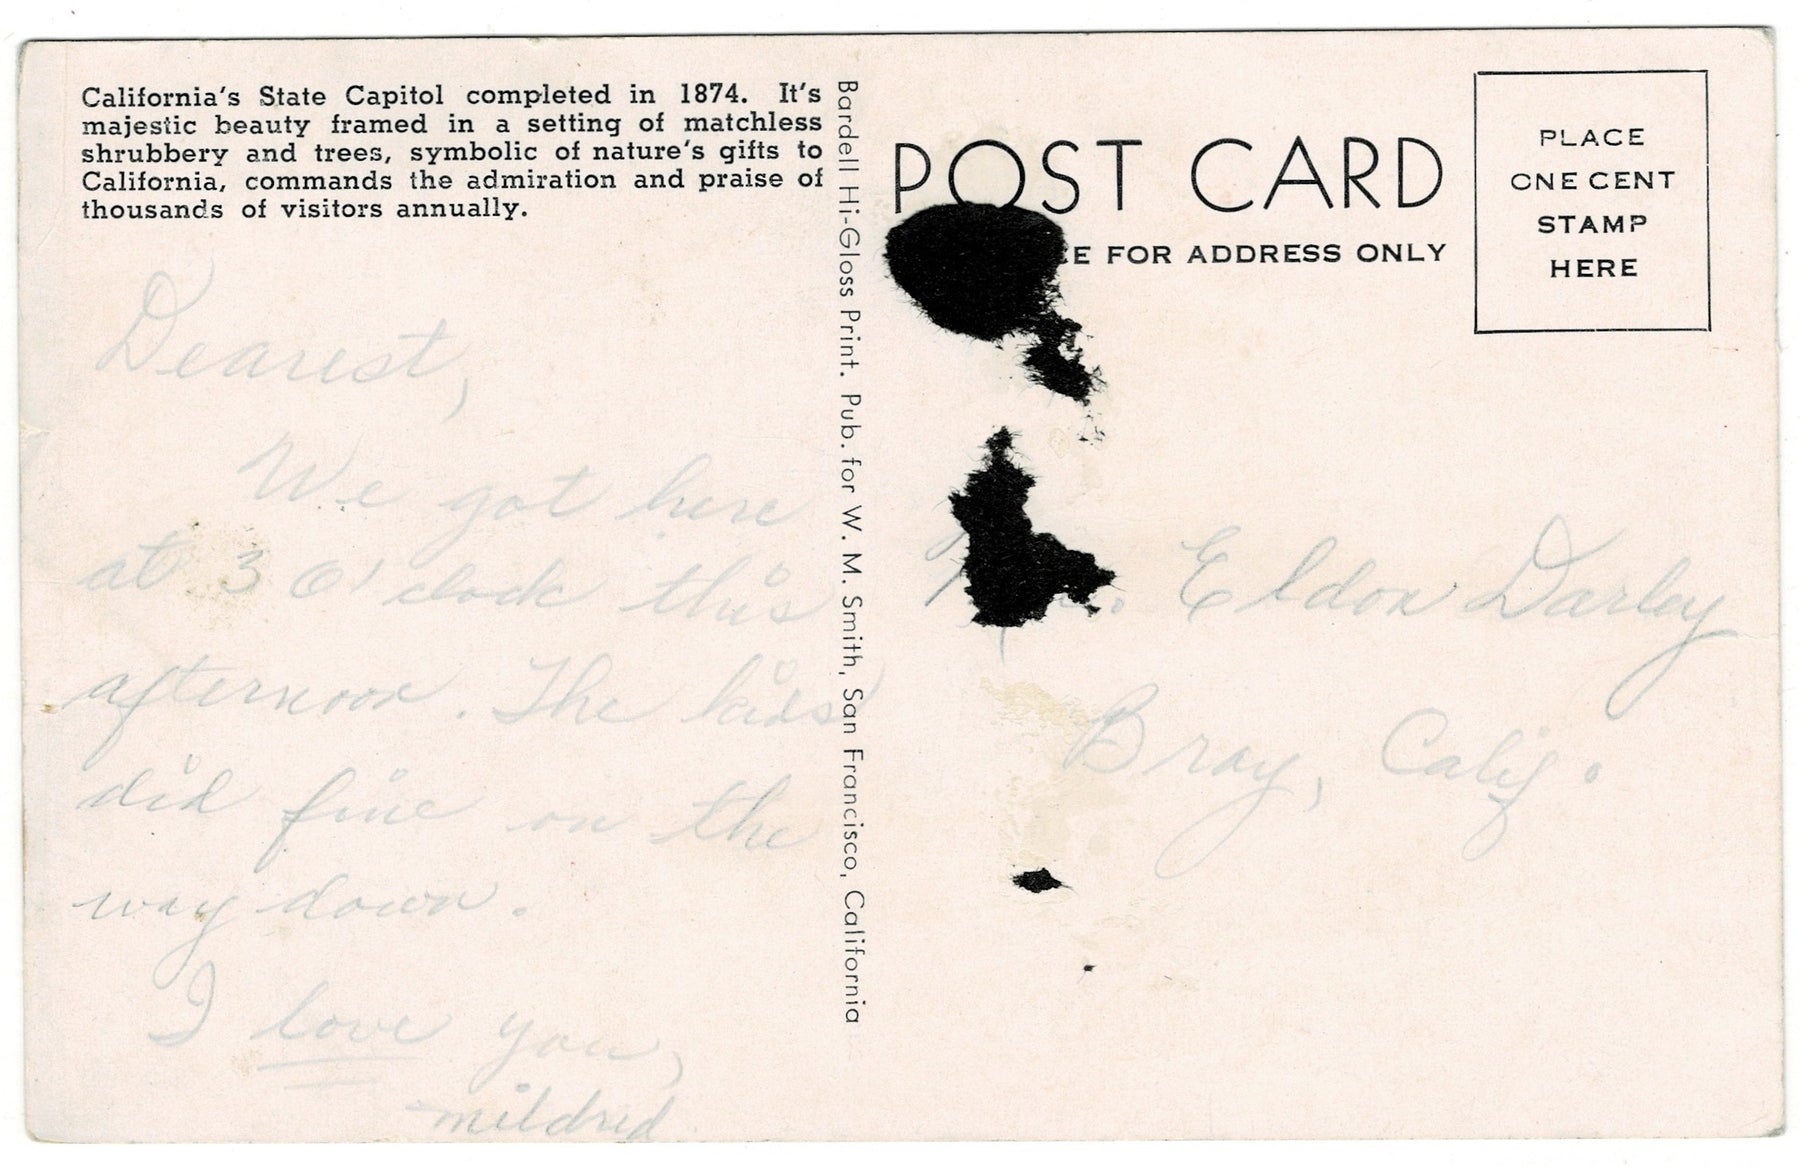 California's State Capitol completed in 1874. It's
majestic beauty framed in a setting of matchless
shrubbery and trees, symbolic of nature's gifts to
California, commands the admiration and praise of
thousands of visitors annually.
Dearest,
We got here
at 3 O'clock this
afternoon. The kids
did fine on the
way down.
I love you,
mildred
Bardell Hi-Gloss Print. Pub. for W. M. Smith, San Francisco, California
POST CARD
FOR ADDRESS ONLY
PLACE
ONE CENT
STAMP
HERE
Eldon Darley
Bray, Calif.